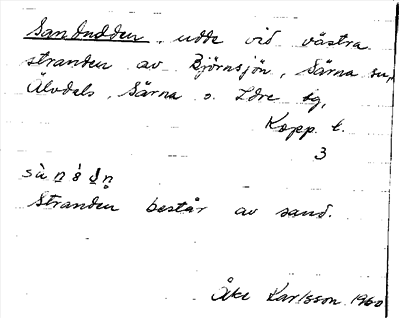 Sandudden, udde vid västra
stranden av Björnsjön, Särna sn,
Älvdals, Särna o. Idre tg,
Kopp. l.
3
Stranden består av sand.
Åke Karlsson 1960